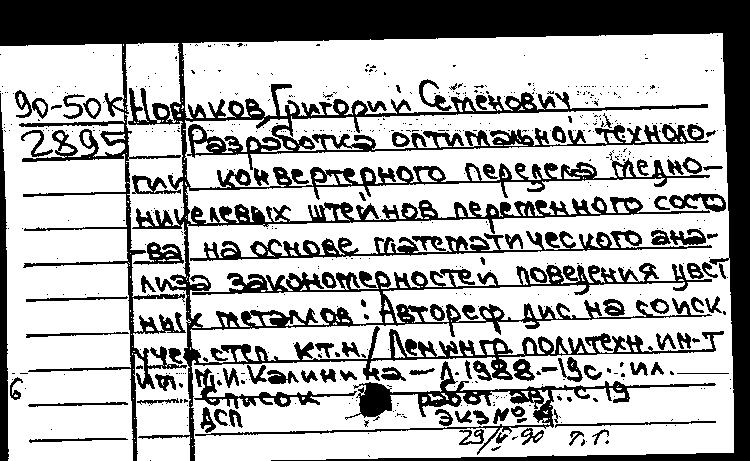 90-50К Новиков, Григорий Семенович
2895 Разработка оптимальной техноло-
гии конвертерного передела медно-
никелевых штейнов переменного соста
-ва на основе математического ана-
лиза закономерностей поведения цвет
ных металлов : Автореф. дис. на соиск.
учен. степ. к.т.н. / Ленингр. политехн. ин-т
им. М.И. Калинина - Л. 1988. - 19 с. : ил.
6 Список работ авт.: с. 19
ДСП экз №
29/V-90 п.г.